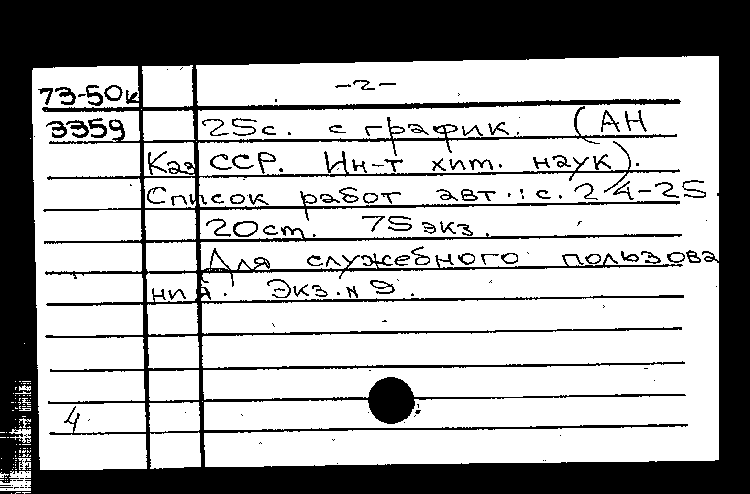 73-50к -2-
3359 25с. с график. (АН
Каз ССР. Ин-т хим. наук).
Список работ авт.: с. 24-25.
20 ст. 75 экз.
Для служебного пользова
ния. Экз. № 9.
4